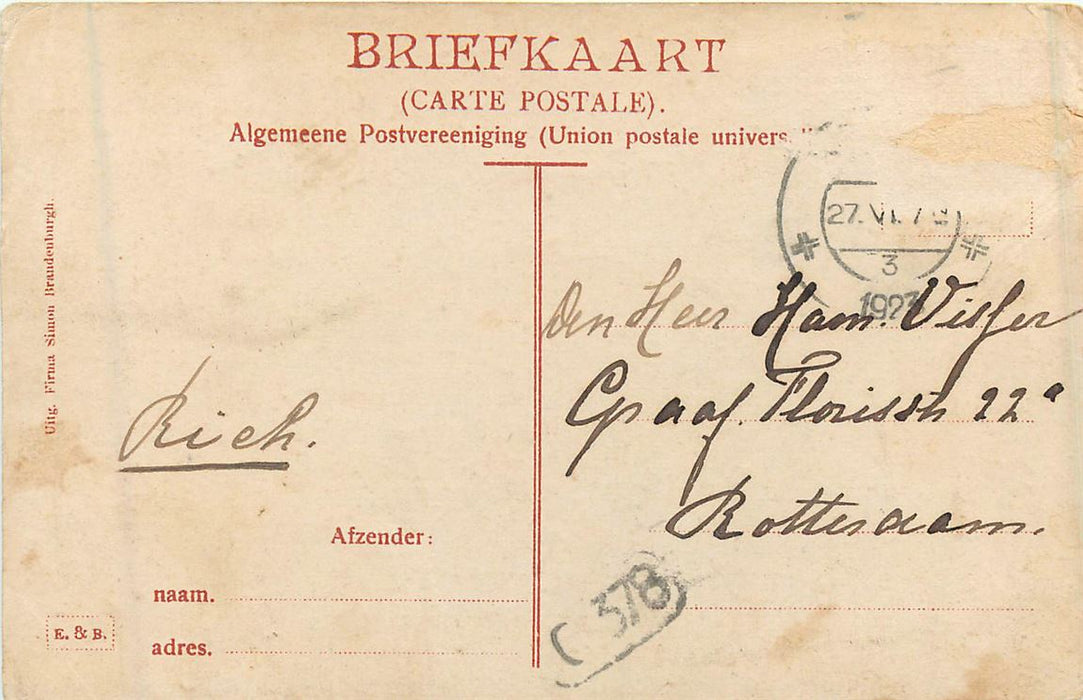 BRIEFKAART
(CARTE POSTALE).
Algemeene Postvereeniging (Union postale univers
27.VI.
3
1923
Uitg. Firma Simon Brandenburgh.
Den Heer Ham. Visser
Graaf. Florisstr 22a
Rotterdam.
Rich.
Afzender:
naam.
adres.
E. & B.
C 378